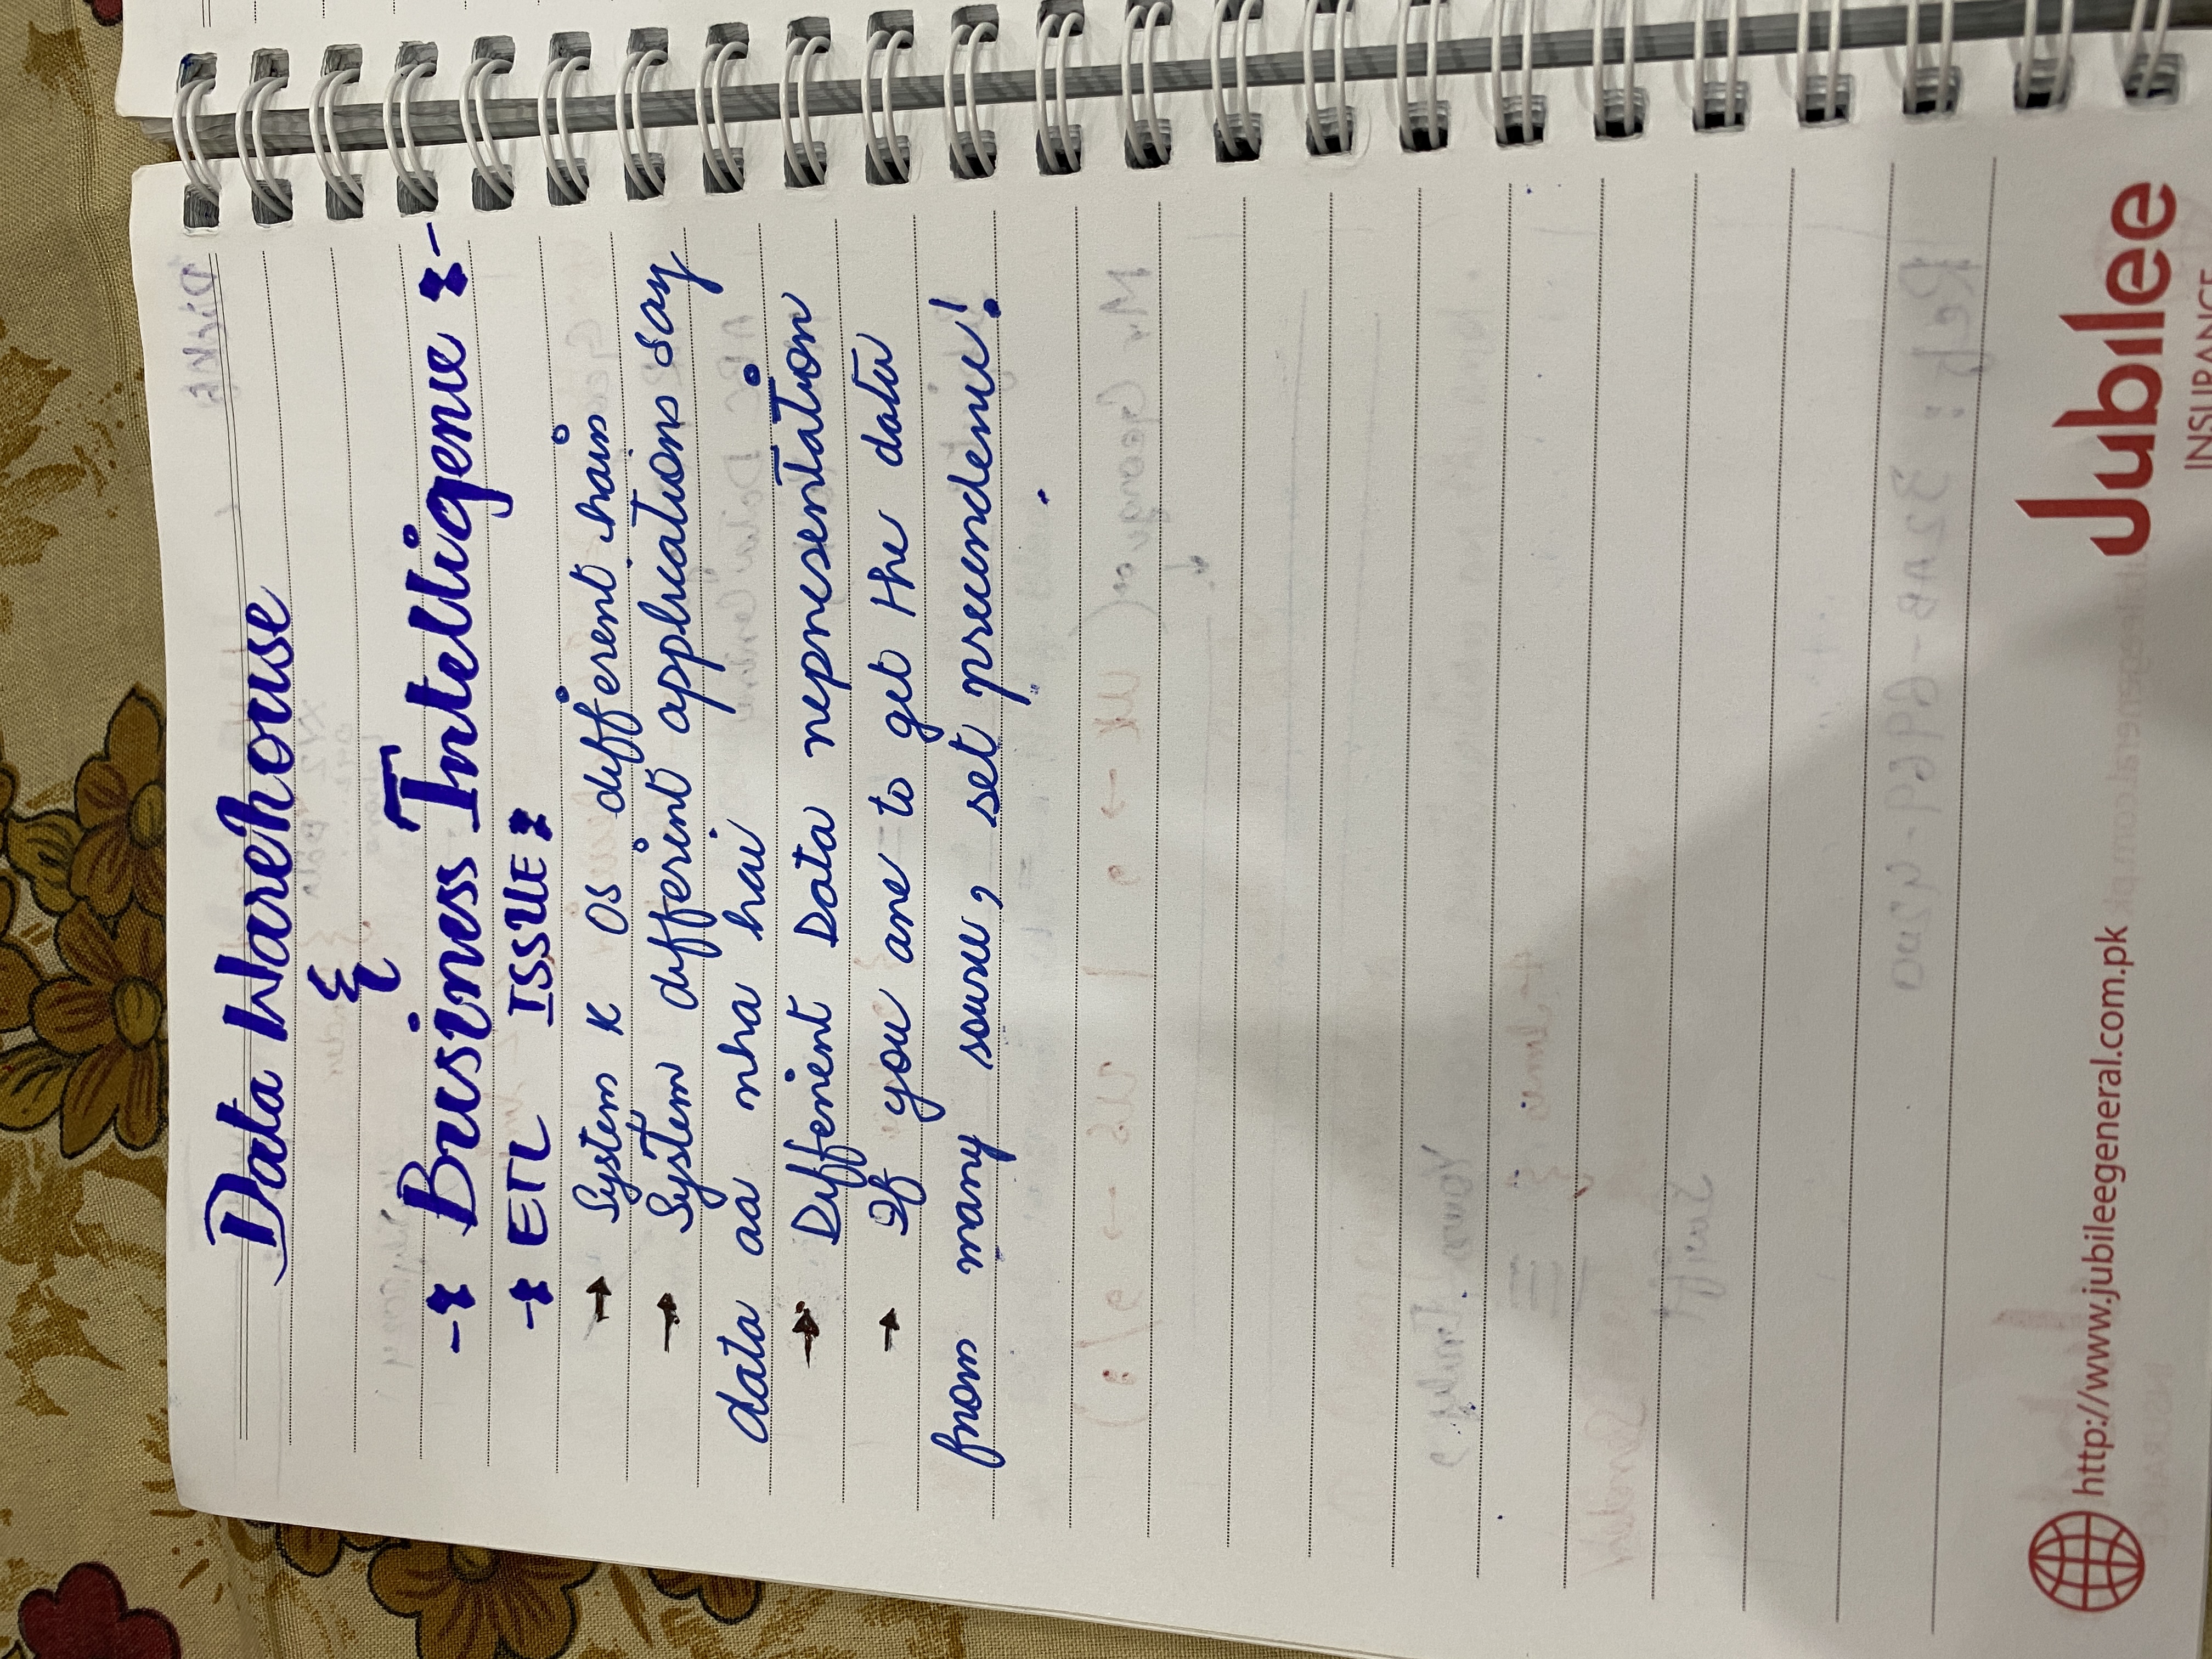 Data Warehouse
&
-: Business Intelligence :-
-: ETL ISSUE :
→ System K OS different hain
→ System different applications say
data aa rha hai
→ Different Data representation
→ If you are to get the data
from many source, set precendence!
http://www.jubileegeneral.com.pk
Jubilee
INSURANCE